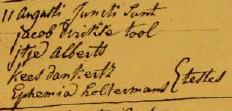 11 Augusti Juncti Sunt
jacob Dirkse tool
itje Alberts
kees dankertz
Ephemia holtermans } testes